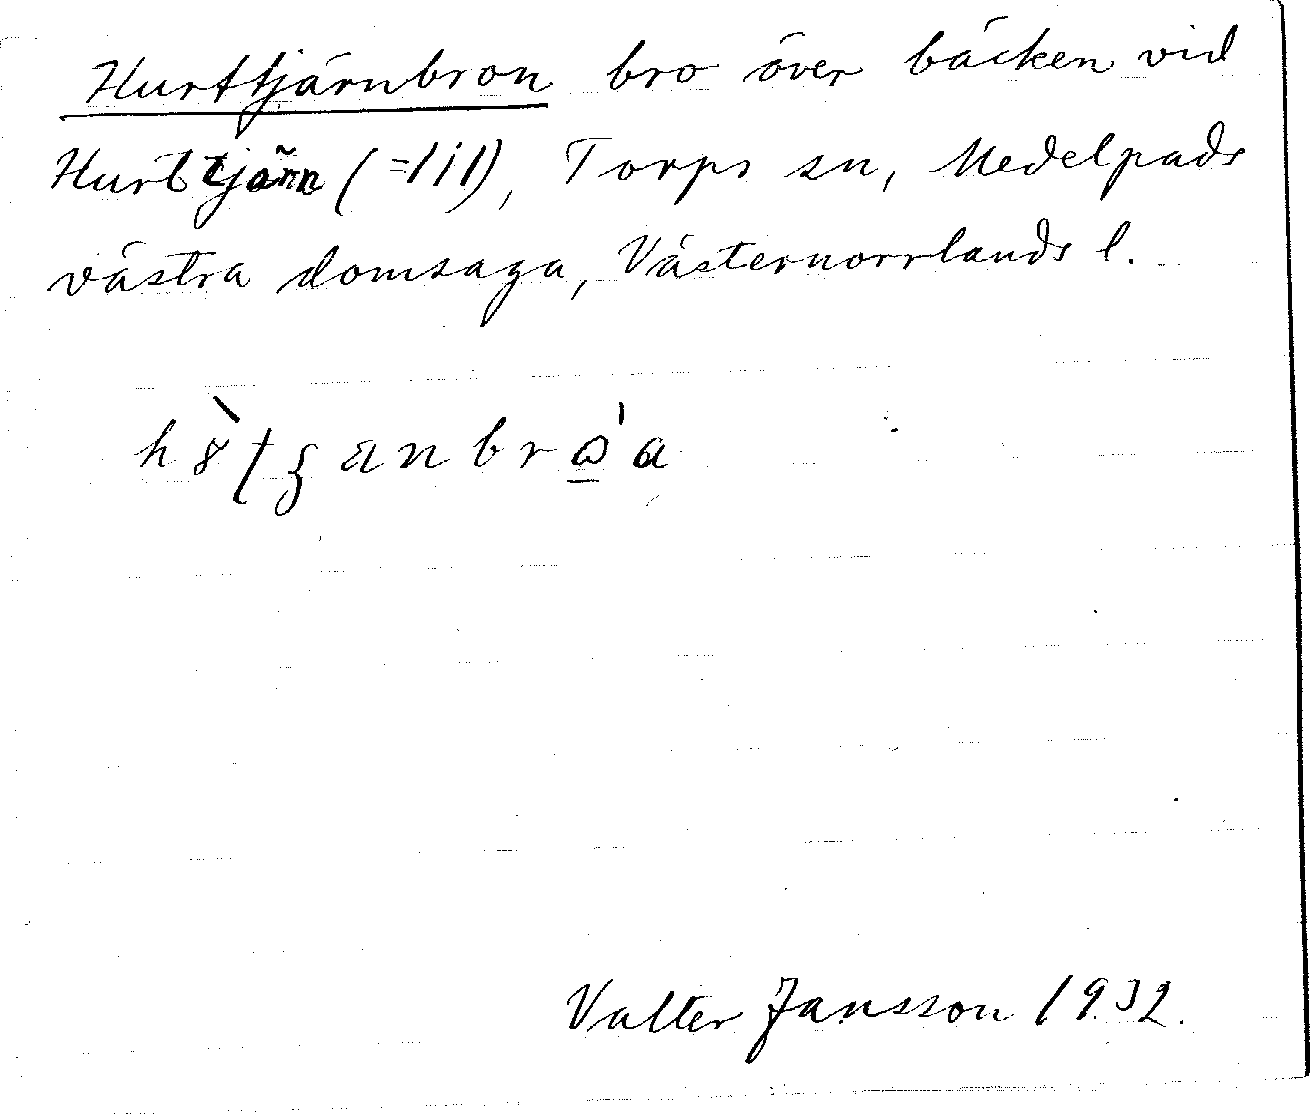 Hurttjärnbron bro över bäcken vid
Hurttjärn (=1i1), Torps sn, Medelpads
västra domsaga, Västernorrlands l.
Valter Jansson 1932.